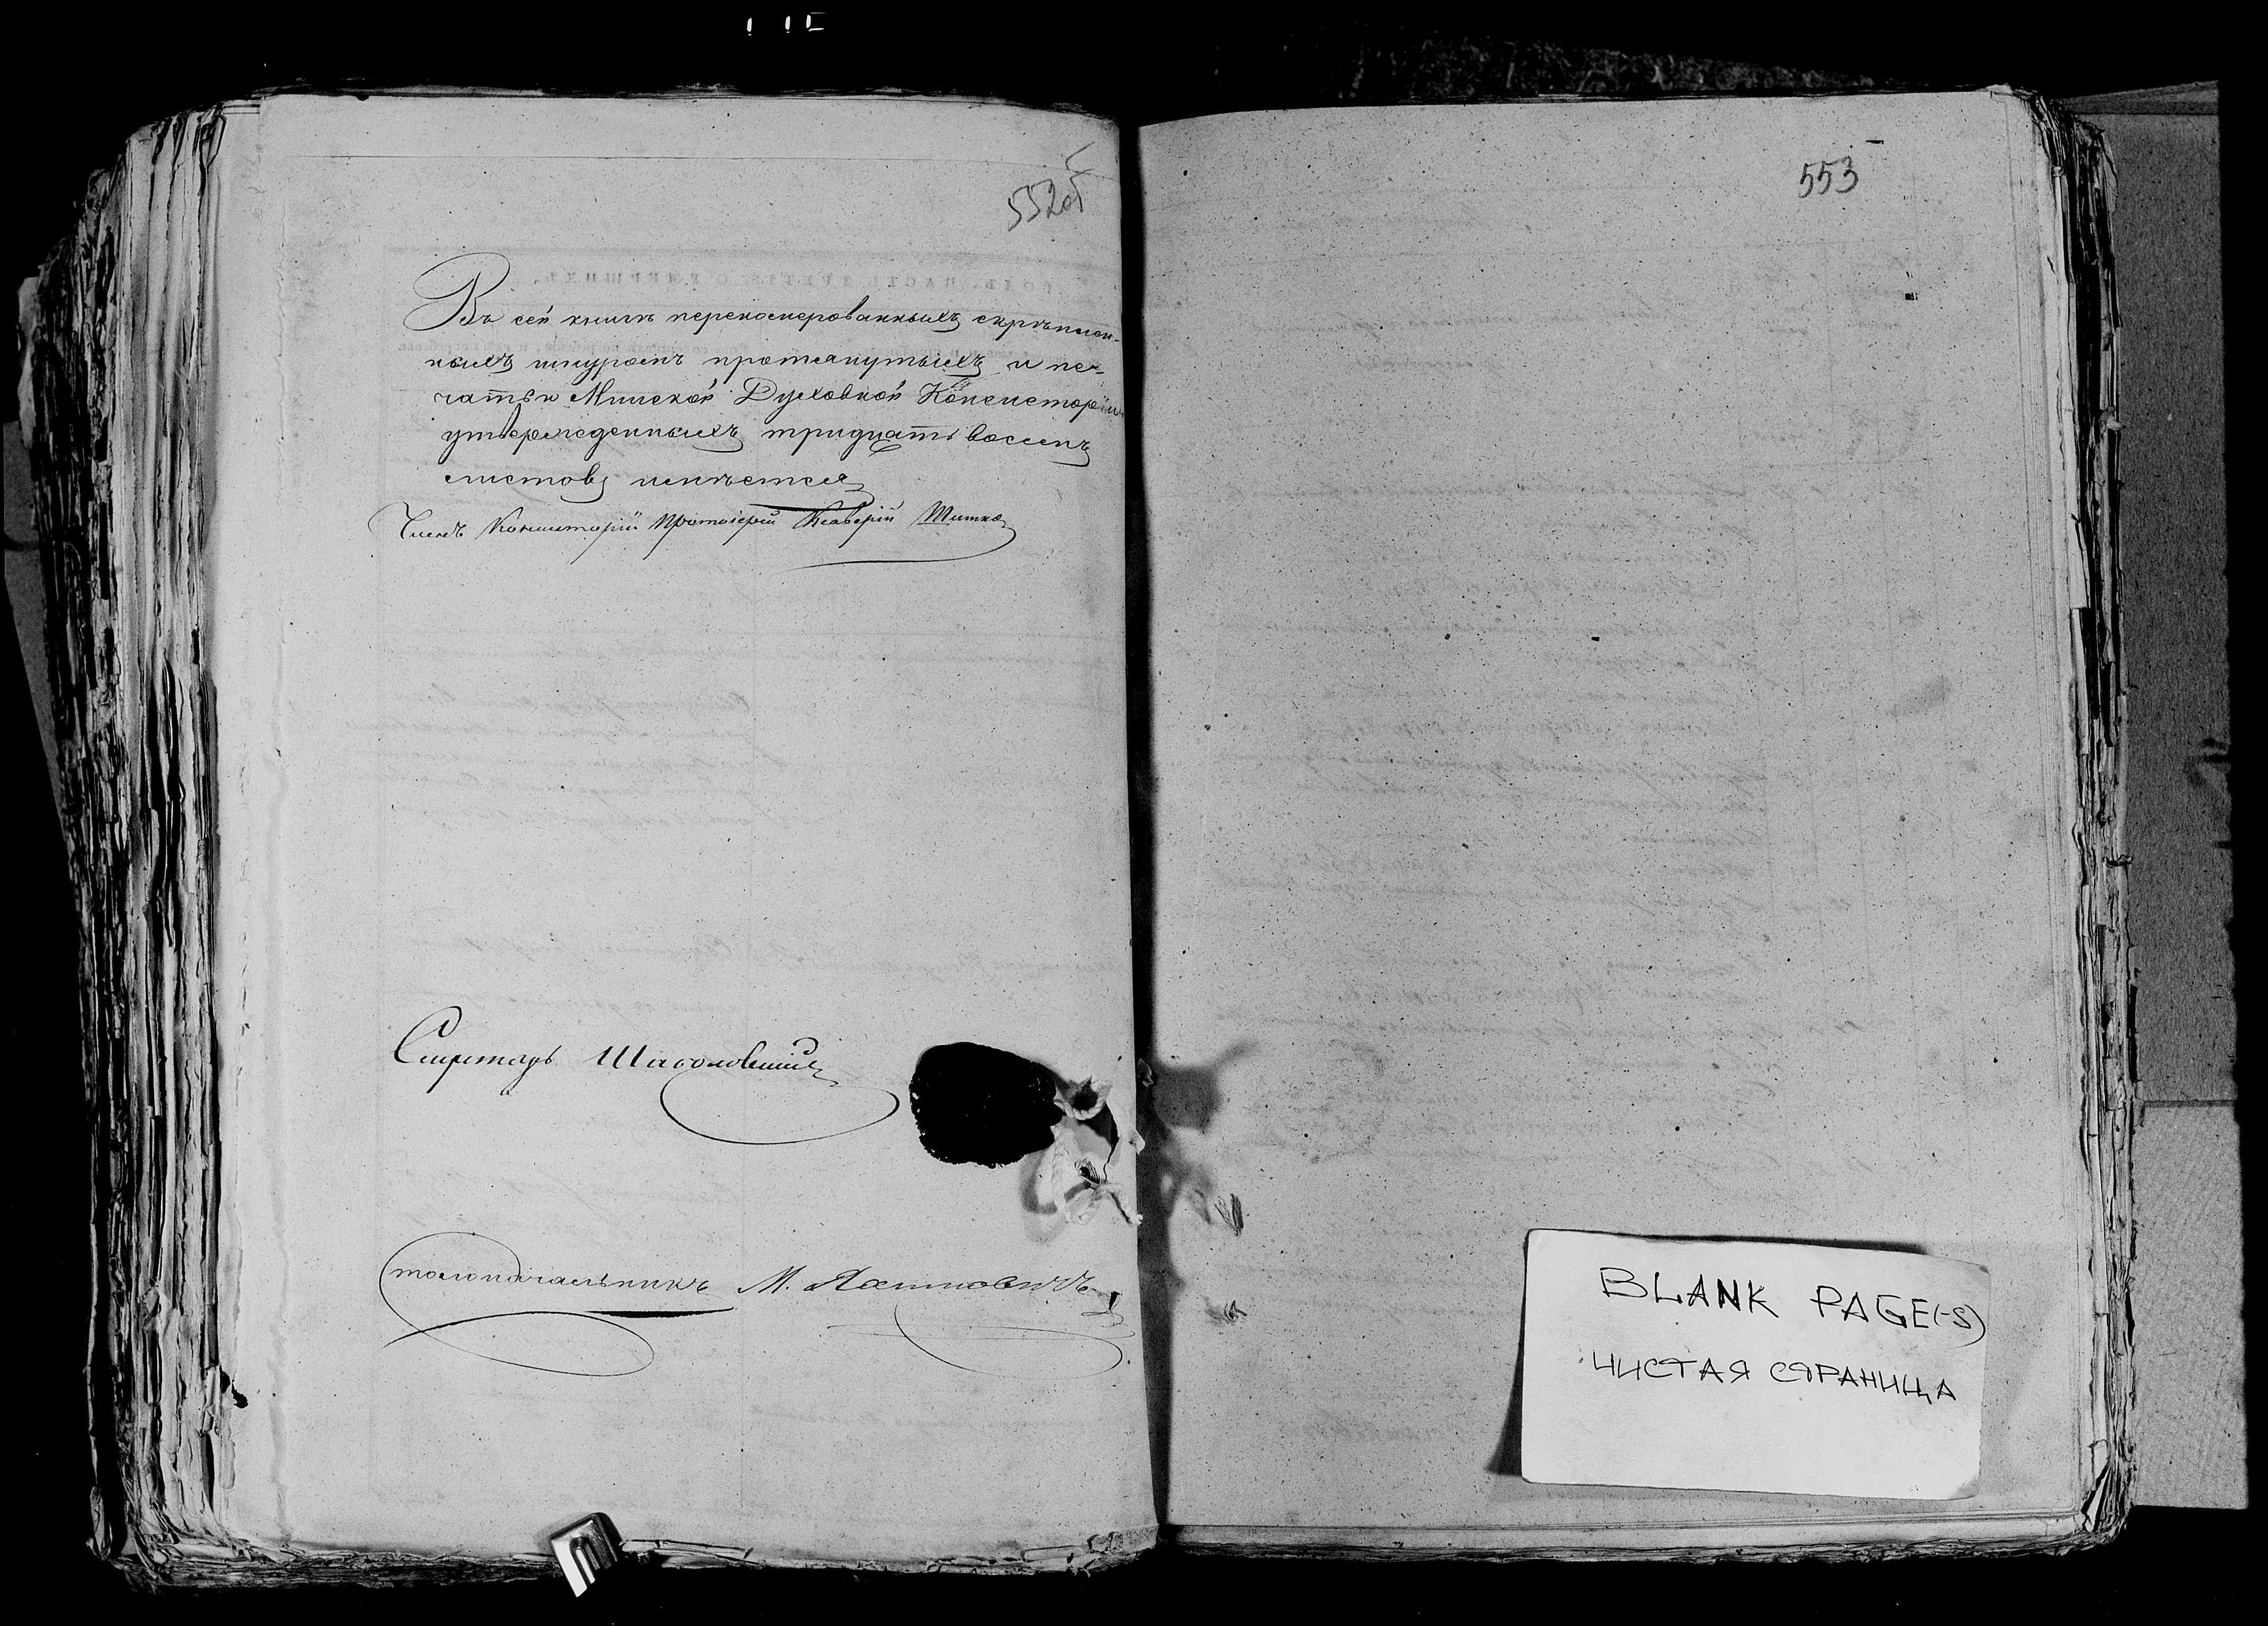 552об
Въ сей книгѣ переномерованныхъ скрѣплен-
ныхъ шнуромъ протянутыхъ и пе-
чатью Минской Духовной Консисторіи
утвержденныхъ тридцать восемь
листовъ имѣется
Членъ Консисторіи Протоіерей Ксаверій Шимко
Секретарь
Столоначальникъ М.
553
BLANK PAGE(-S)
ЧИСТАЯ СТРАНИЦА